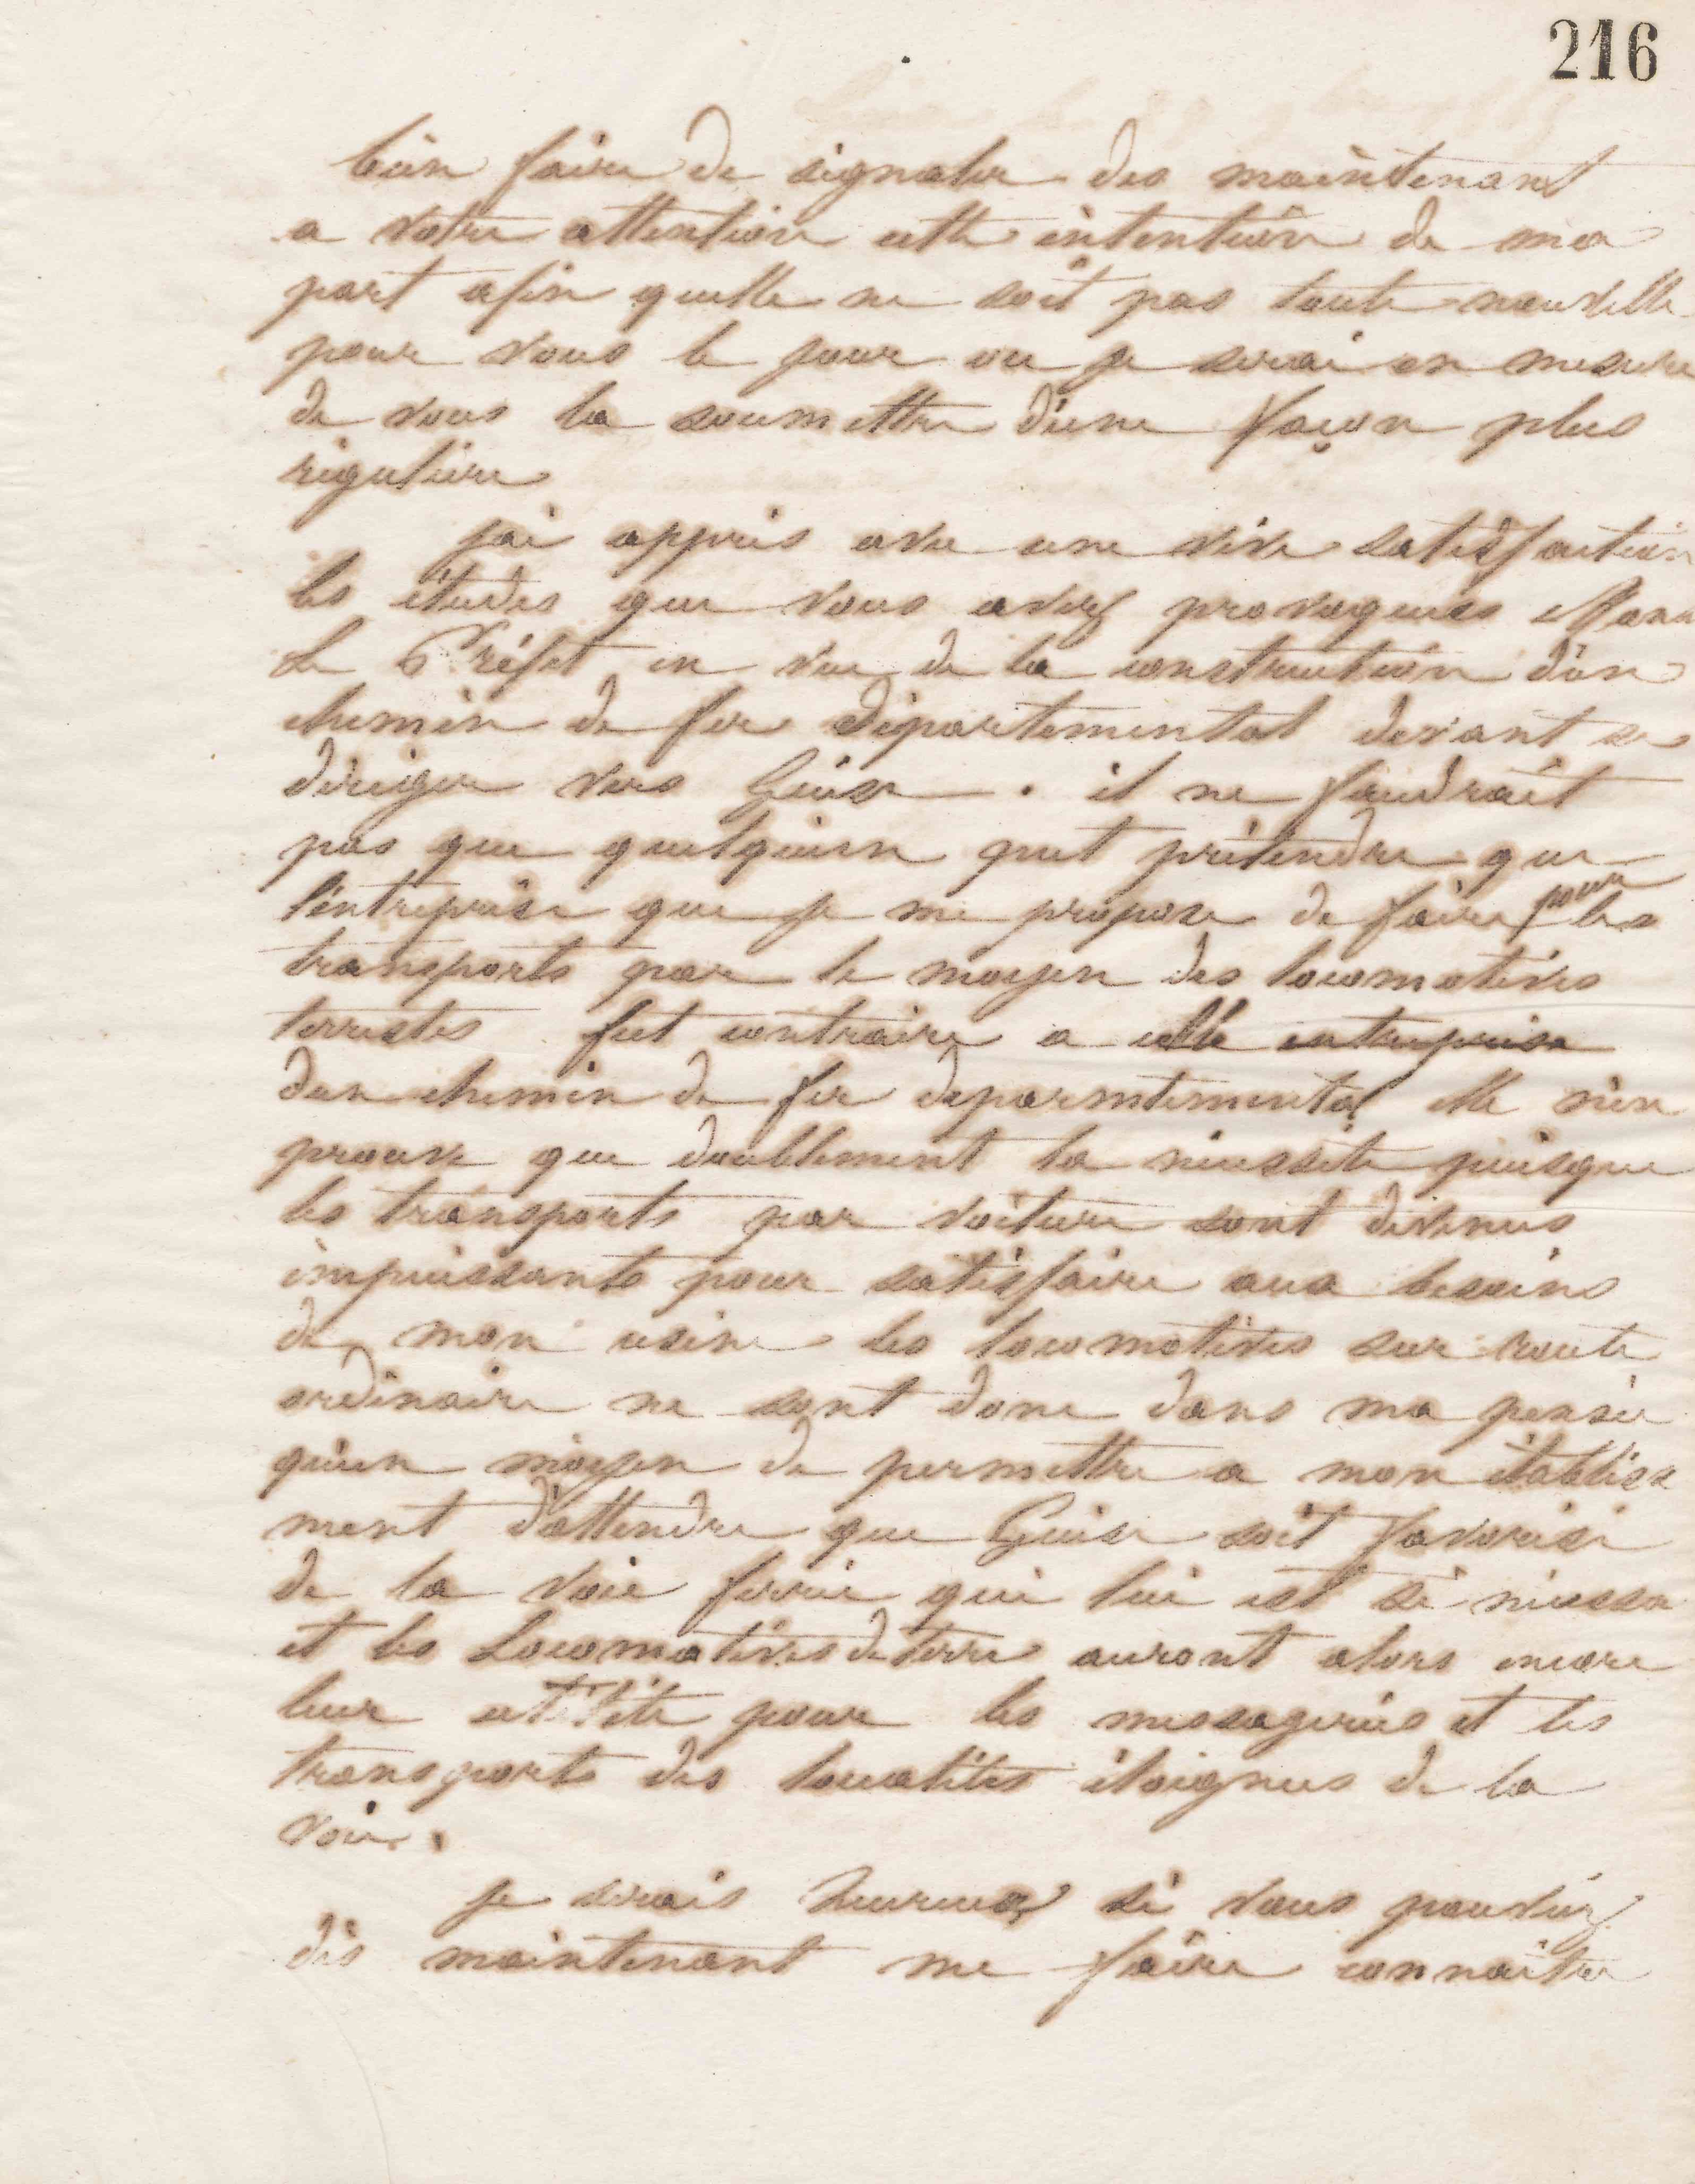 216
bien faire de signaler des maintenant
a votre attention cette intention de ma
part afin quelle ne soit pas toute nouvelle
pour vous le jour ou je serai en mesure
de vous la soumettre d'une façon plus
régulière
jai appris avec une vive satisfaction
les études que vous avez provoquées Mons
le Préfet en vue de la construction d'un
chemin de fer départemental devant se
diriger vers Guise. il ne faudrait
pas que quelquun put prétendre que
l'entreprise que je me propose de faire pour les
transports par le moyen des locomotives
terrestes fut contraire a celle entreprise
dun chemin de fer deparmtemental elle n'en
prouve que doublement la nécessité puisque
les transports par voiture sont devenus
impuissants pour satisfaire aux besoins
de mon usine les locomotives sur route
ordinaire ne sont donc dans ma pensée
qu'un moyen de permettre a mon établisse
ment d'attendre que Guise soit favorisé
de la voie ferrée qui lui est si nécessa
et les Locomotives de terre auront alors encore
leur utilité pour les messageries et les
transports des localités éloignées de la
voie.
je serais heureux si vous pouviez
dès maintenant me faire connaître